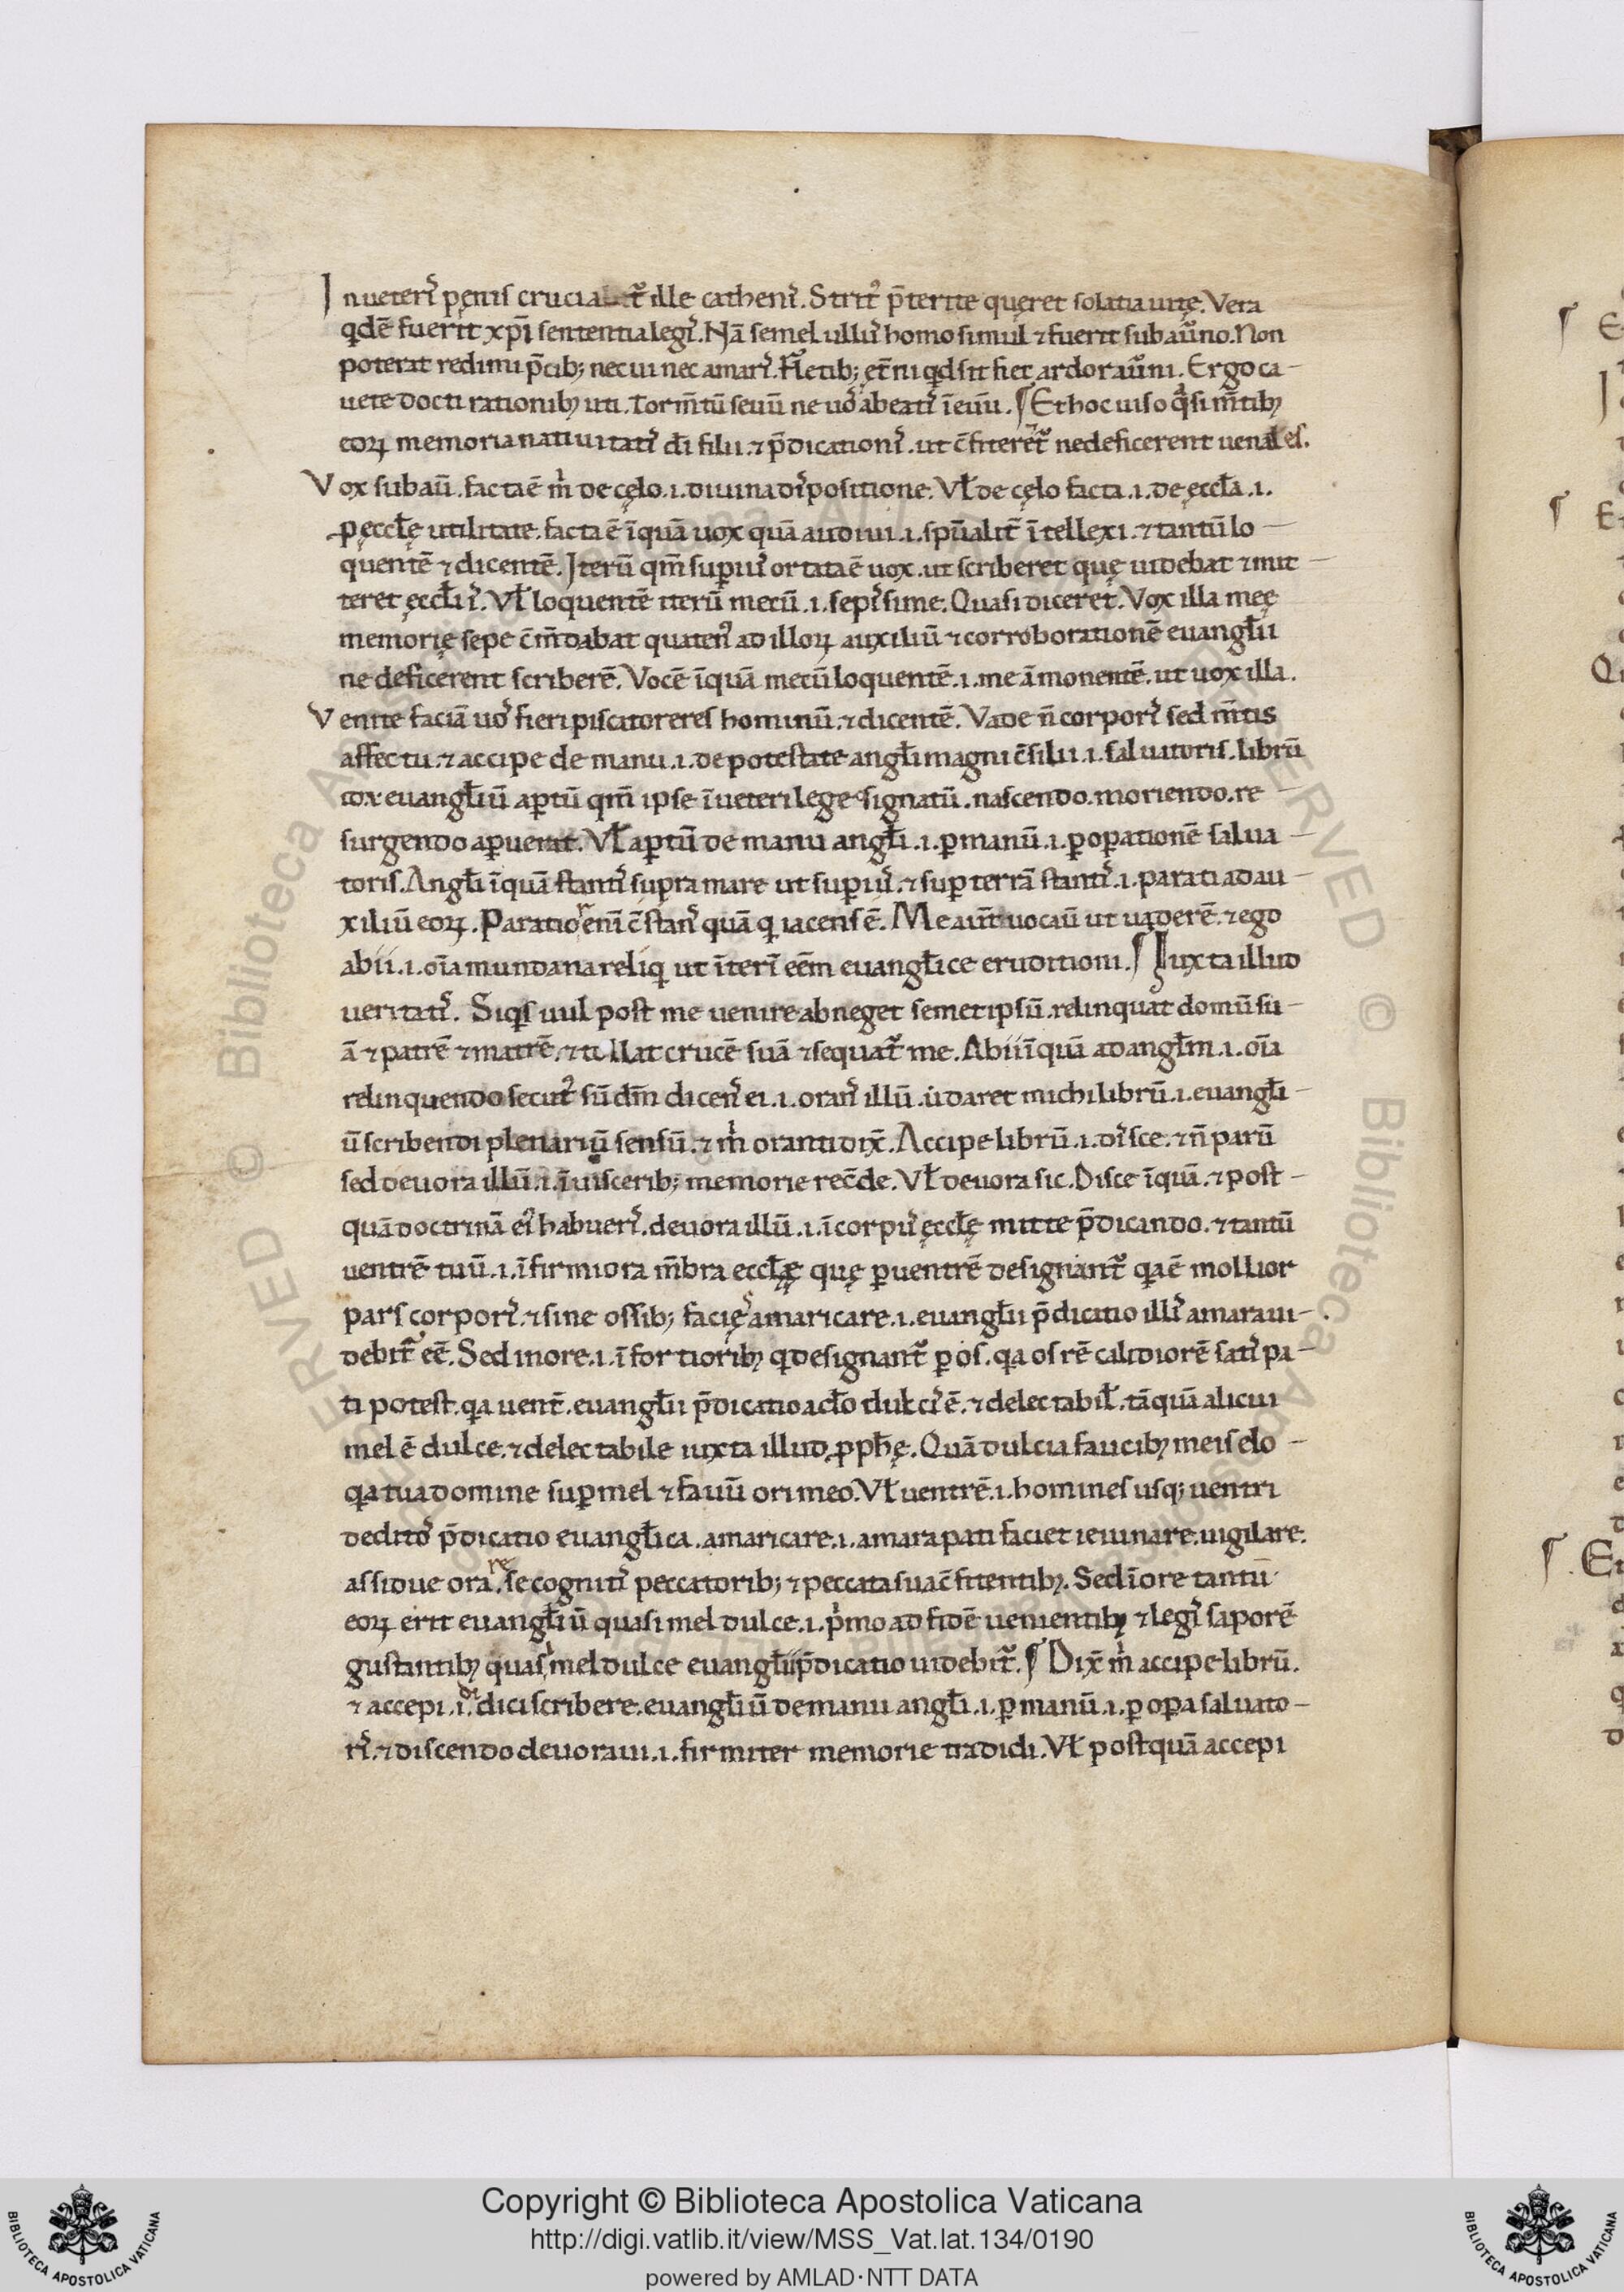 In ueterꝭ pęnis crucia t᷑ ille cathenꝭ. Strit᷒ p̄terite quęret solatia uitę. Vera
qdē fuerit xp̄i sententia legꝭ. Nā semel ullꝰ homo simul ⁊ fuerit sub au᷑no. Non
poterat redimi p̄cib; nec ui nec amarꝭ. Fletib; et̄ ni qd sit fiet ardor au᷑ni. Ergo ca-
uete docti rationibꝫ uti. Torm̄tū seuū ne uoꝭ abeatꝭ ī euū. ¶ Et hoc uiso q̇si m̄tibꝫ
eoꝝ memoria natiuitatꝭ dī filii. ⁊ p̄dicationꝭ. ut c̄fiteret᷑ ne deficerent uenales.
Vox sub au᷑. facta ē ṁ de cęlo .i. diuina dꝭpositione. Vƚ de cęlo facta .i. de ęccƚa .i.
p ęccƚę utilitate. facta ē īquā uox quā audiui .i. sp̄ualit̄ ītellexi. ⁊ tantū lo-
quentē ⁊ dicentē. Iterū qm̄ supiꝰ ortata ē uox. ut scriberet quę uidebat ⁊ mit-
teret ęccƚiꝭ. Vƚ loquentē iterū mecū .i. sepꝭsime. Quasi diceret. Vox illa meę
memorię sepe c̄m̄dabat quatenꝰ ad illoꝝ auxiliū ⁊ corroborationē euangƚii
ne deficerent scriberē. Vocē īquā mecū loquentē .i. me āmonentē. ut uox illa.
Venite faciā uoꝭ fieri piscatoreres hominū. ⁊ dicentē. Vade n̄ corporꝭ sed m̄tis
affectu. ⁊ accipe de manu .i. de potestate angƚi magni c̄silii .i. saluatoris. librū
.i. euangƚiū aptū qm̄ ipse ī ueteri lege signatū. nascendo. moriendo. re-
surgendo apuerit. Vƚ aptū de manu angƚi .i. p manū .i. p opationē salua-
toris. Angƚi īquā stantꝭ supra mare ut supiꝰ. ⁊ sup terrā stantꝭ .i. parati ad au-
xiliū eoꝝ. Paratior enī ē stanꝭ quā q iacens ē. Me aūt uocauit ut uaderē. ⁊ ego
abii .i. oīa mundana reliq ut īterī eēm euangƚice eruditioni. ¶ Iuxta illud
ueritatꝭ. Siqs uul post me uenire abneget semetipsū. relinquat domū su-
ā ⁊ patrē ⁊ matrē. ⁊ tollat crucē suā ⁊ sequat᷑ me. Abii īquā ad angƚm .i. oīa
relinquendo secut᷒ sū dm̄ dicenꝭ ei .i. oranꝭ illū. u̇ daret michi librū .i. euangƚi-
ū scribendi plenariū sensū. ⁊ ṁ oranti dix̄. Accipe librū .i. dꝭsce. ⁊ n̄ parū
sed deuora illū .i. ī uiscerib; memorie rec̄de. Vƚ deuora sic. Disce īquā. ⁊ post-
quā doctrinā eiꝰ habuerꝭ. deuora illū .i. ī corpꝰ ęccƚę mitte p̄dicando. ⁊ tantū
uentrē tuū .i. īfirmiora m̄bra eccƚę quę p uentrē designant᷑ qa ē mollior
pars corporꝭ. ⁊ sine ossib; facięꝭ amaricare .i. euangƚii p̄dicatio illꝭ amara ui-
debit᷑ eē. Sed in ore .i. ī fortioribꝫ q designant᷑ p os. qa os rē calidiorē satꝭ pa-
ti potest. qa uent̄. euangƚii p̄dicatio adƚo dulcꝭ ē. ⁊ delectabiƚ. tāquā alicui
mel ē dulce. ⁊ delectabile iuxta illud pph̄ę. Quā dulcia faucibꝫ meis elo-
qa tua domine sup mel ⁊ fauū ori meo. Vƚ uentrē .i. homines usq; uentri
deditoꝭ p̄dicatio euangƚica. amaricare .i. amara pati faciet ieiunare. uigilare.
assidue orare. se cognitꝭ peccatorib; ⁊ peccata sua c̄fitentibꝫ. Sed ī ore tantū
eoꝝ erit euangƚiū quasi mel dulce .i. ṗmo ad fidē uenientibꝫ ⁊ legꝭ saporē
gustantibꝫ quasi mel dulce euangƚii p̄dicatio uidebit᷑. ¶ Dix̄ ṁ accipe librū.
⁊ accepi .i. didici scribere. euangƚiū de manu angƚi .i. p manū .i. p opa saluato-
rꝭ. ⁊ discendo deuoraui .i. firmiter memorie tradidi. Vƚ postquā accepi
Copyright © Biblioteca Apostolica Vaticana
http://digi.vatlib.it/view/MSS_Vat.lat.134/0190
powered by AMLAD·NTT DATA